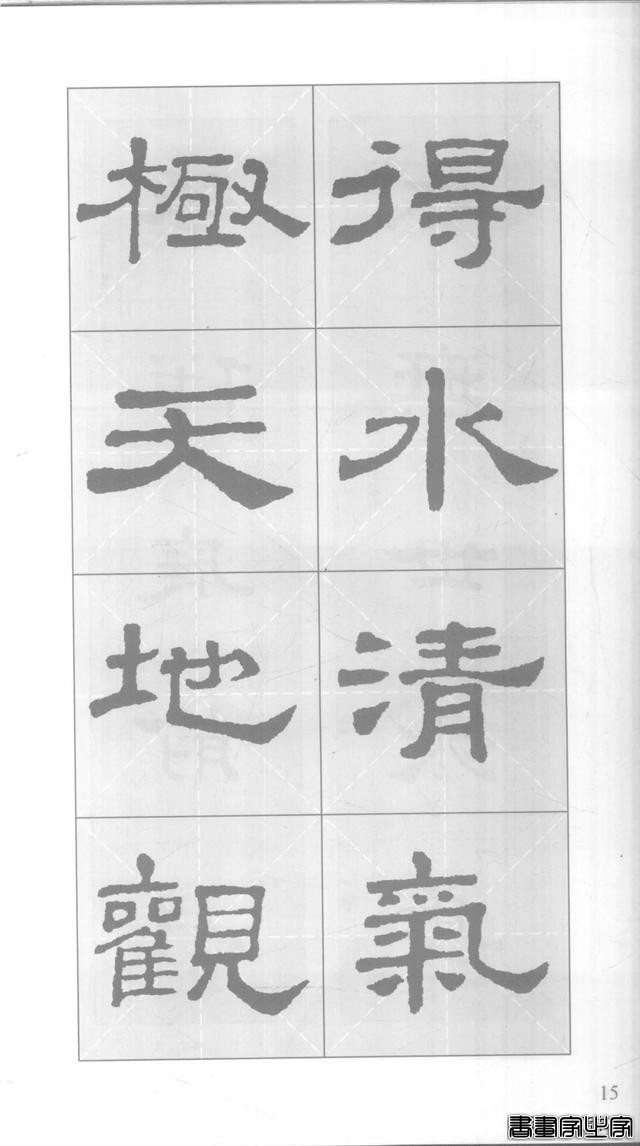 得水清氣
極天地觀
15
書畫家之家